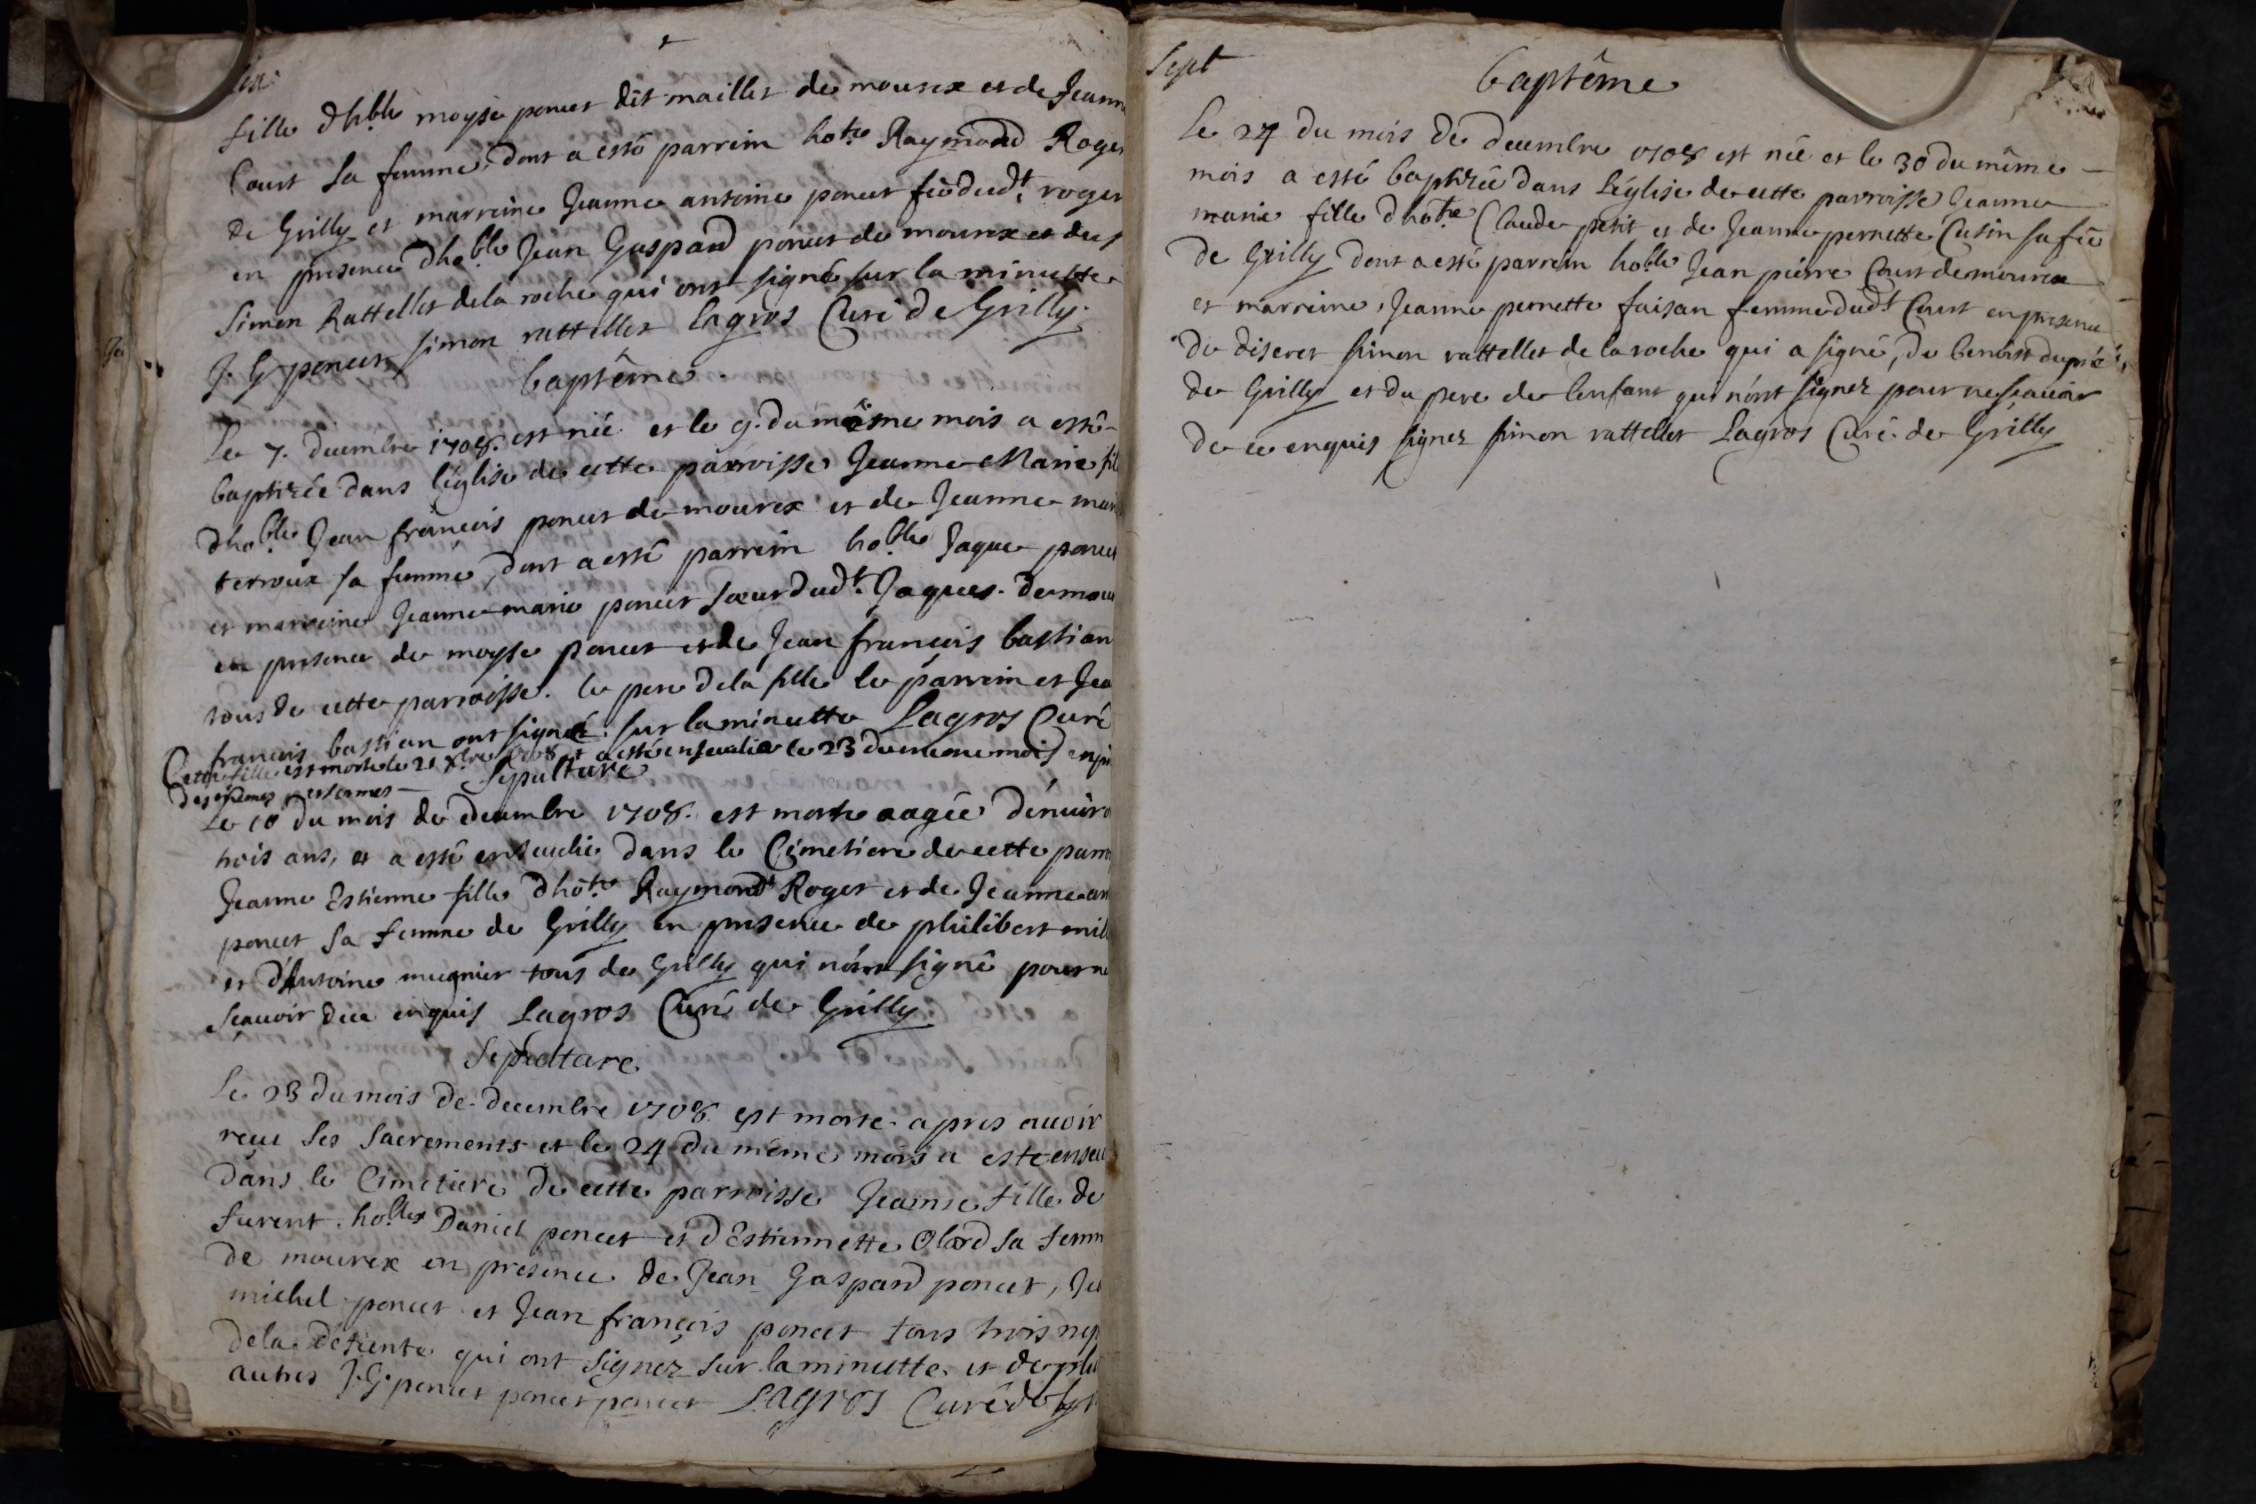 six
fille dhble moyse poncet dit maillet de mourex et de Jeanne
Court sa femme, dont a esté parrein hôte Raymond Roget
de Grilly et marreine Jeanne antoine poncet fẽ dudt roget
en presence dhoble Jean Gaspard poncet de mourex et de
simon Rattellet de la roche qui ont signé sur la minutte
J. G poncet simon rattellet lagros Curé de Grilly
baptême
Le 7. decembre 1708. est née et le 9. du mesme mois a esté
baptizée dans l'église de cette parroisse Jeanne Marie fil
dhoble Jean françois poncet de mourex et de Jeanne mari
terroux sa femme, dont a esté parrein hoble Jaque poncet
et marreine Jeanne marie poncet sœur dudt Jaques de mou
en presence de moyse poncet et de Jean françois bastian
tous de cette parroisse. le pere de la fille le parrein et Jea
françois bastian ont signé sur la minutte Lagros Curé
Cette fille est morte le 21 xbre 1708 et a esté ensevelie le 23 du mesme mois en p
des mêmes personnes
Sepulture
Le 10 du mois de decembre 1708. est morte aagée d'enviro
trois ans, et a esté ensevelie dans le Cimetiere de cette parro
Jeanne Estienne fille dhôte Raymond Roget et de Jeanne an
poncet sa femme de Grilly en presence de philibert mil
et d'Antoine mugnier tous de Grilly qui n'ont signé pour ne
sçavoir de ce enquis Lagros Curé de Grilly
Sepulture
Le 23 du mois de decembre 1708 est morte apres avoir
reçu ses sacrements et le 24 du même mois a esté enseu
dans le Cimetiere de cette parroisse Jeanne fille de
furent hobles Daniel poncet et d'Estiennette Olard sa femm
de mourex en presence de Jean Gaspard poncet, Je
michel poncet et Jean françois poncet tous trois ne
de la défunte qui ont signéz sur la minutte et de plu
autres J. G. poncet poncet poncet Lagros Curé de Gri
Sept
baptême
Le 24 du mois de decembre 1708 est née et le 30 du même
mois a esté baptizée dans l'église de cette parroisse Jeanne
marie fille dhote Claude petit et de Jeanne pernette Cusin sa fẽ
de Grilly dont a esté parrein hoble Jean pierre Court de mourex
et marreine Jeanne pernette faisan femme dudt Court en presence
de discret simon rattellet de la roche qui a signé, de benoist dupré
de Grilly et du pere de l'enfant qui n'ont signez pour ne sçavoir
de ce enquis signez simon rattellet Lagros Curé de Grilly